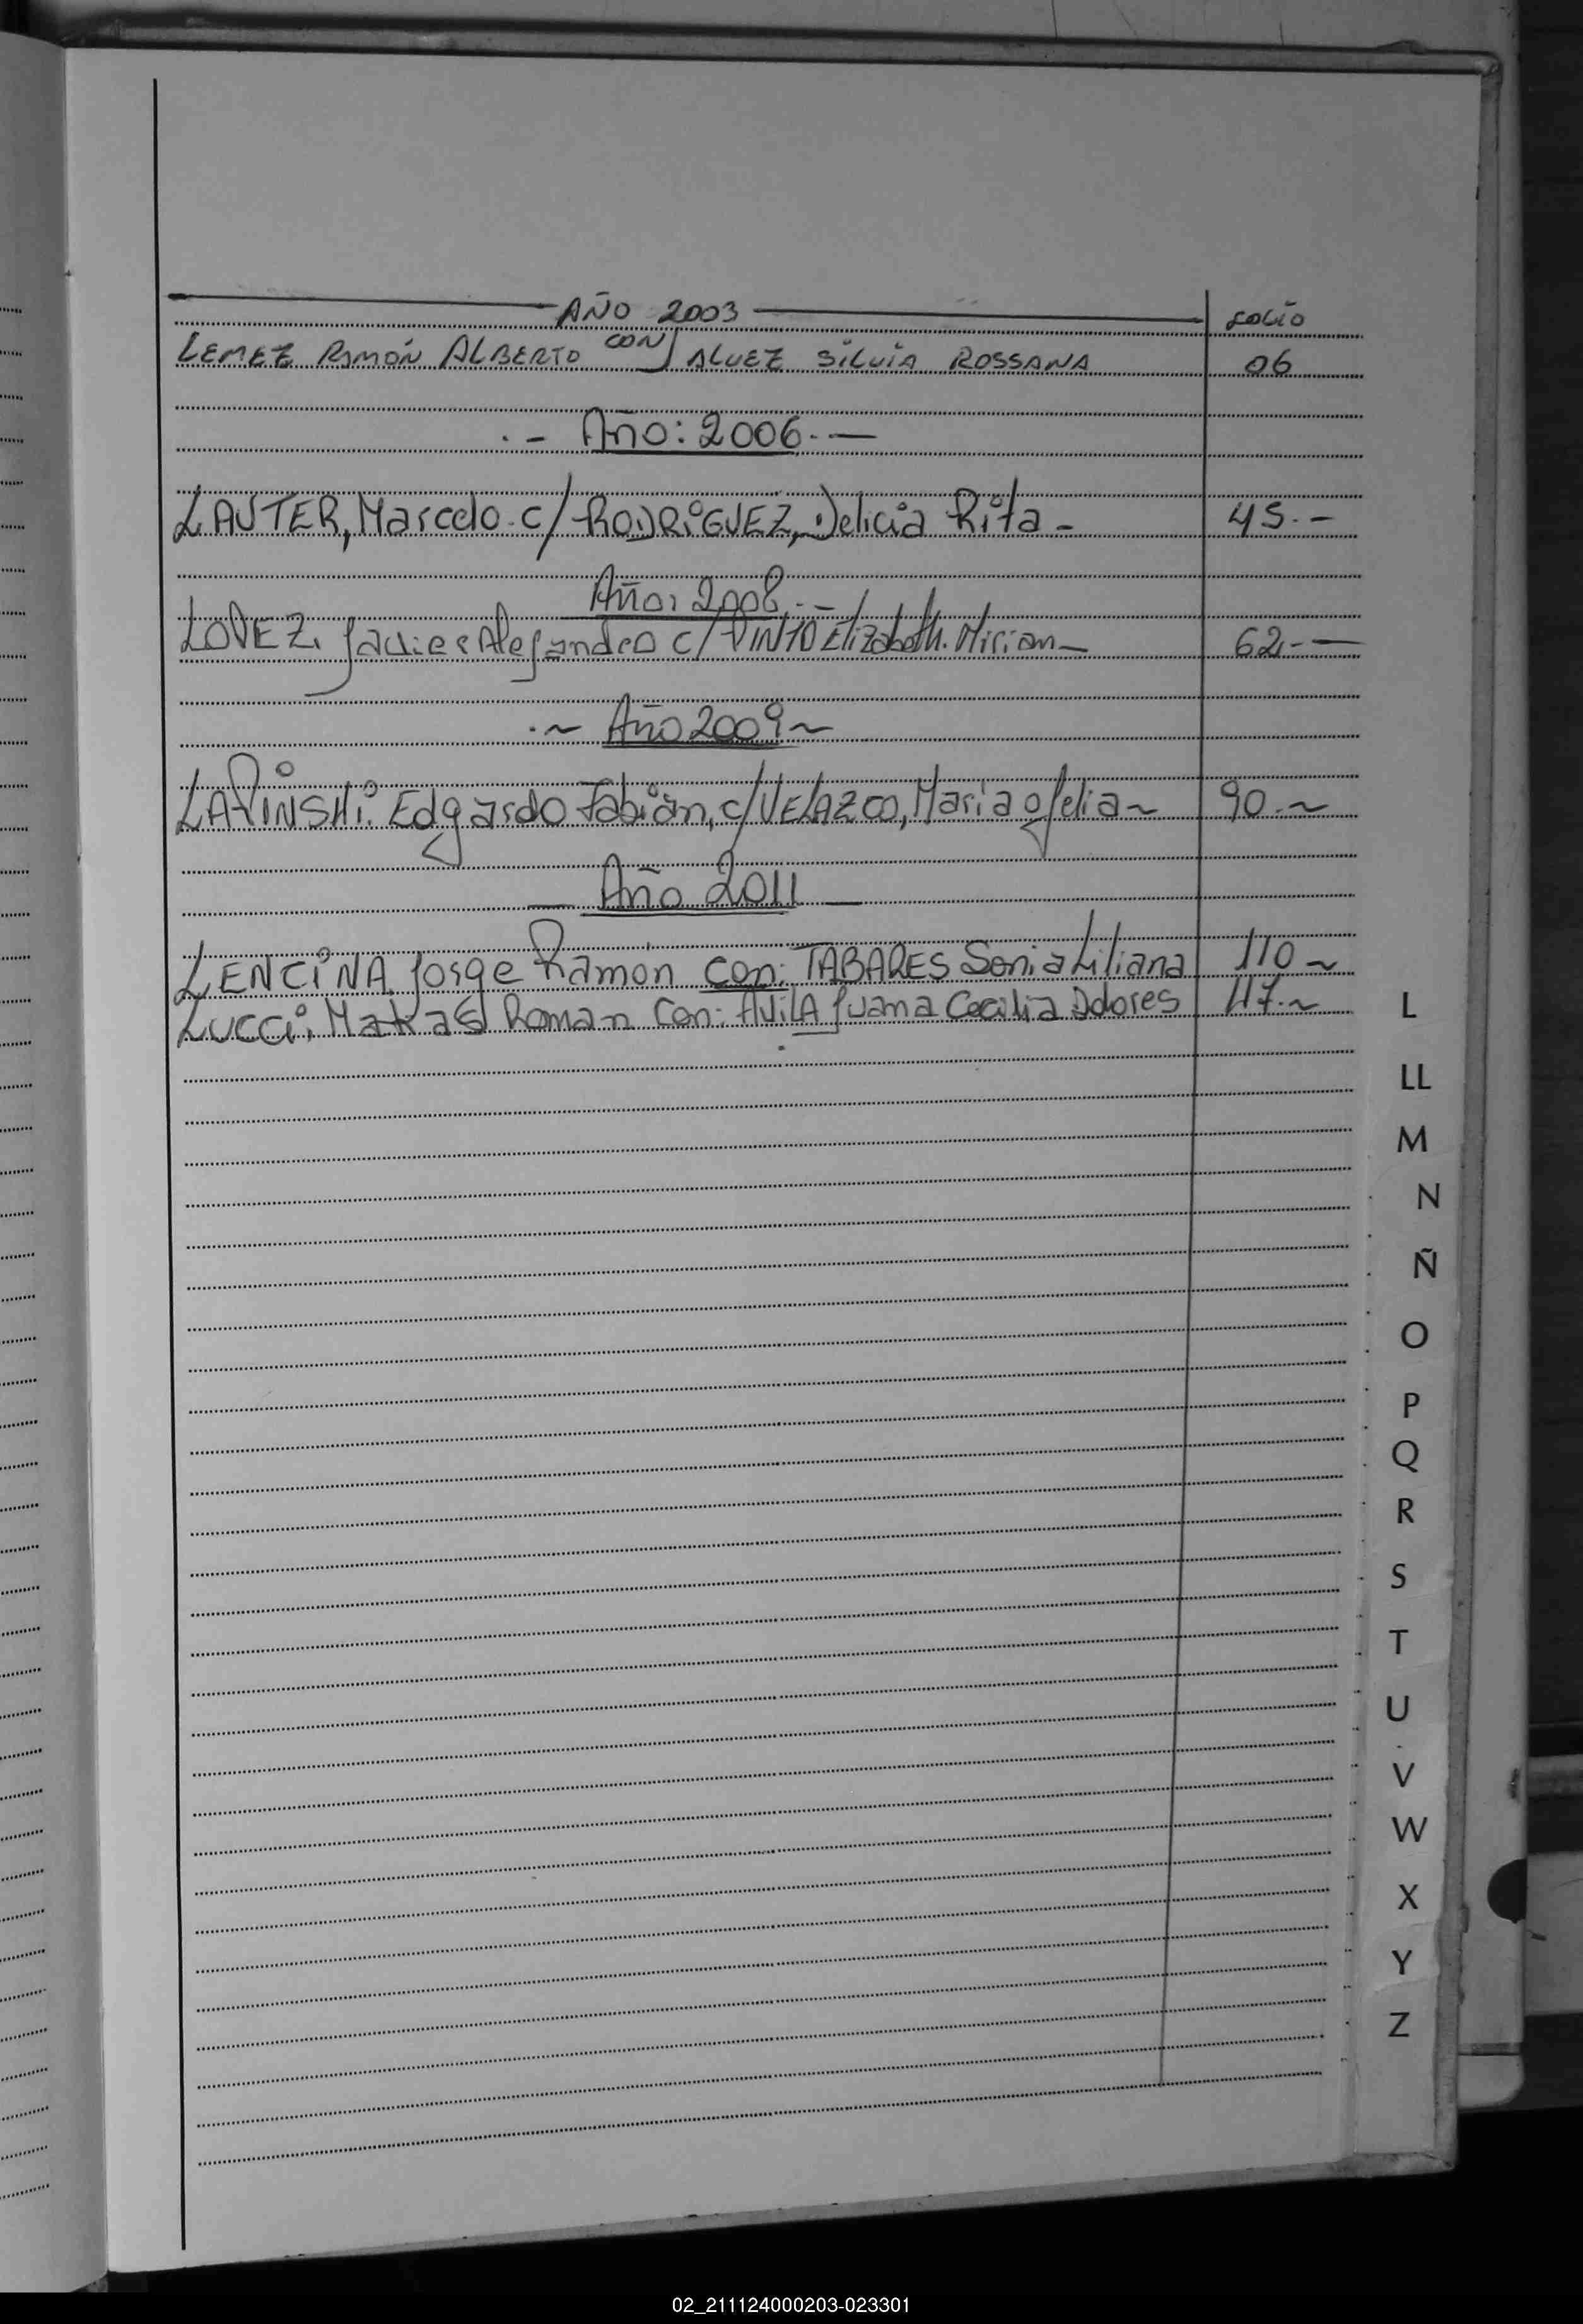 AÑO 2003 FOLIO
LEMEZ RAMÓN ALBERTO CON/ ALVEZ SILVIA ROSSANA 06
.- Año: 2006.-
LAUTER, Marcelo. c/ RODRIGUEZ, Delicia Rita - 45.-
Año: 2008.-
LOPEZ, Javier Alejandro c/ PINTO Elizabeth. Mirian - 62.-
.~ Año 2009 ~
LAPINSHi. Edgardo Fabián, c/ VELAZCO, Maria Ofelia ~ 90.~
— Año 2011 —
LENCINA, Jorge Ramón con: TABARES Sonia Liliana 110 ~
LUCCi, Roman Con: AViLA Juana Cecilia Dolores 117.~
L
LL
M
N
Ñ
O
P
Q
R
S
T
U
V
W
X
Y
Z
02_211124000203-023301